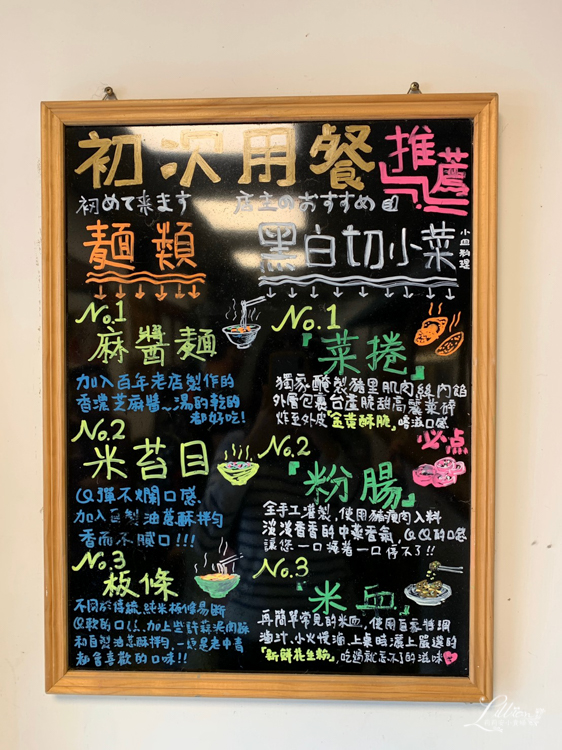 初次用餐
推薦
初めて来ます 店主のおすすめ
麵類
No.1
麻醬麵
加入百年老店製作的
香濃芝麻醬~湯的乾的
都好吃!
No.2
米苔目
QQ彈不爛口感、
加入自製油蔥酥拌勻
香而不膩口!!!
No.3
板條
不同於傳統,純米板條易斷
QQ軟的口
和自製油蔥酥拌勻、一定是老中青
都會喜歡的口味!!
黑白切小菜
小皿料理
No.1
『菜捲』
獨家醃製豬里肌肉絲內餡
外層包裹台產脆甜高麗菜碎
炸至外皮「金黃酥脆」
必点
No.2
『粉腸』
全手工灌製,使用豬瘦肉入料
淡淡香香的中藥香氣,QQ的口感
讓您一口接著一口停不了!!
No.3
『米血』
再簡單常見的米血,使用百家特調
滷汁、小火慢滷、上桌時灑上嚴選的
「新鮮花生粉」吃過就忘不了的滋味